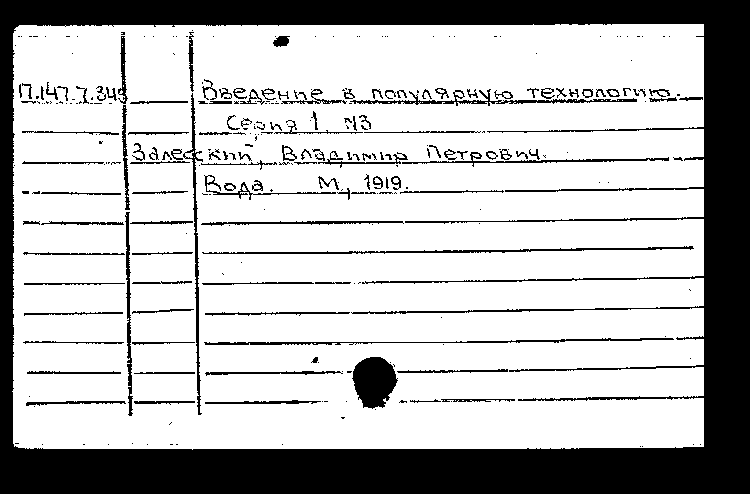 17.147.7.343 Введение в популярную технологию.
Серия 1. №3
Залесский, Владимир Петрович.
Вода. М., 1919.